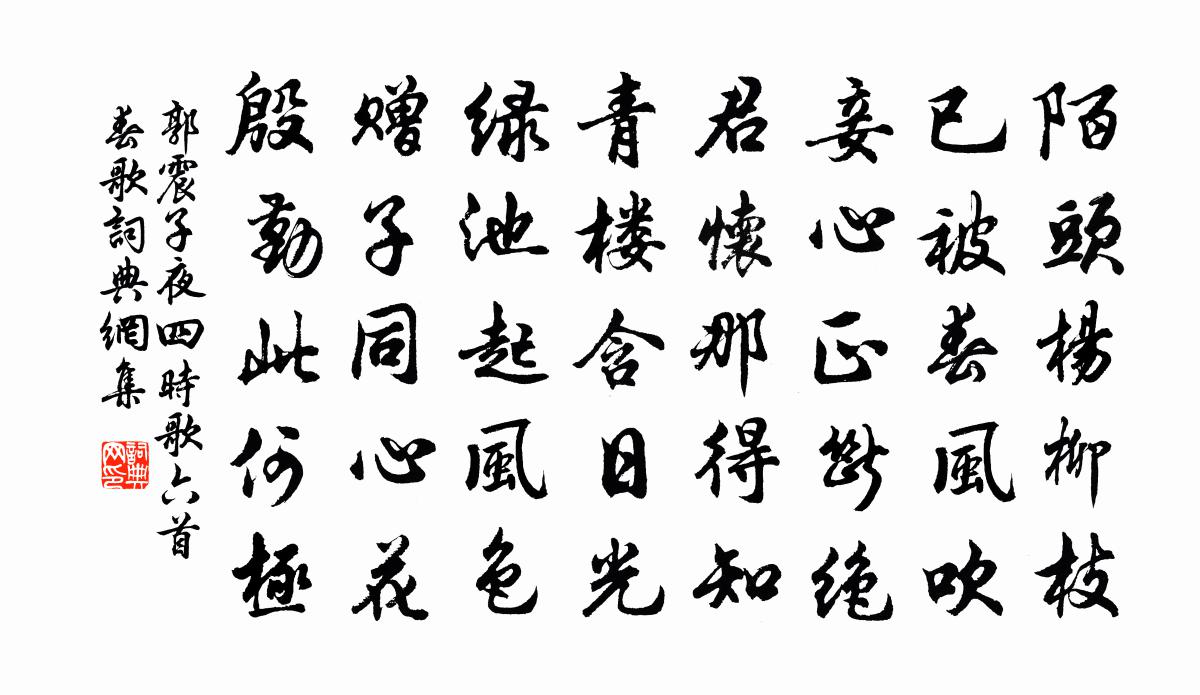 陌頭楊柳枝
已被春風吹
妾心正斷絶
君懷那得知
青楼含日光
緑池起風色
赠子同心花
殷勤此何極
郭震子夜四時歌六首
春歌詞典網集
詞典
网印